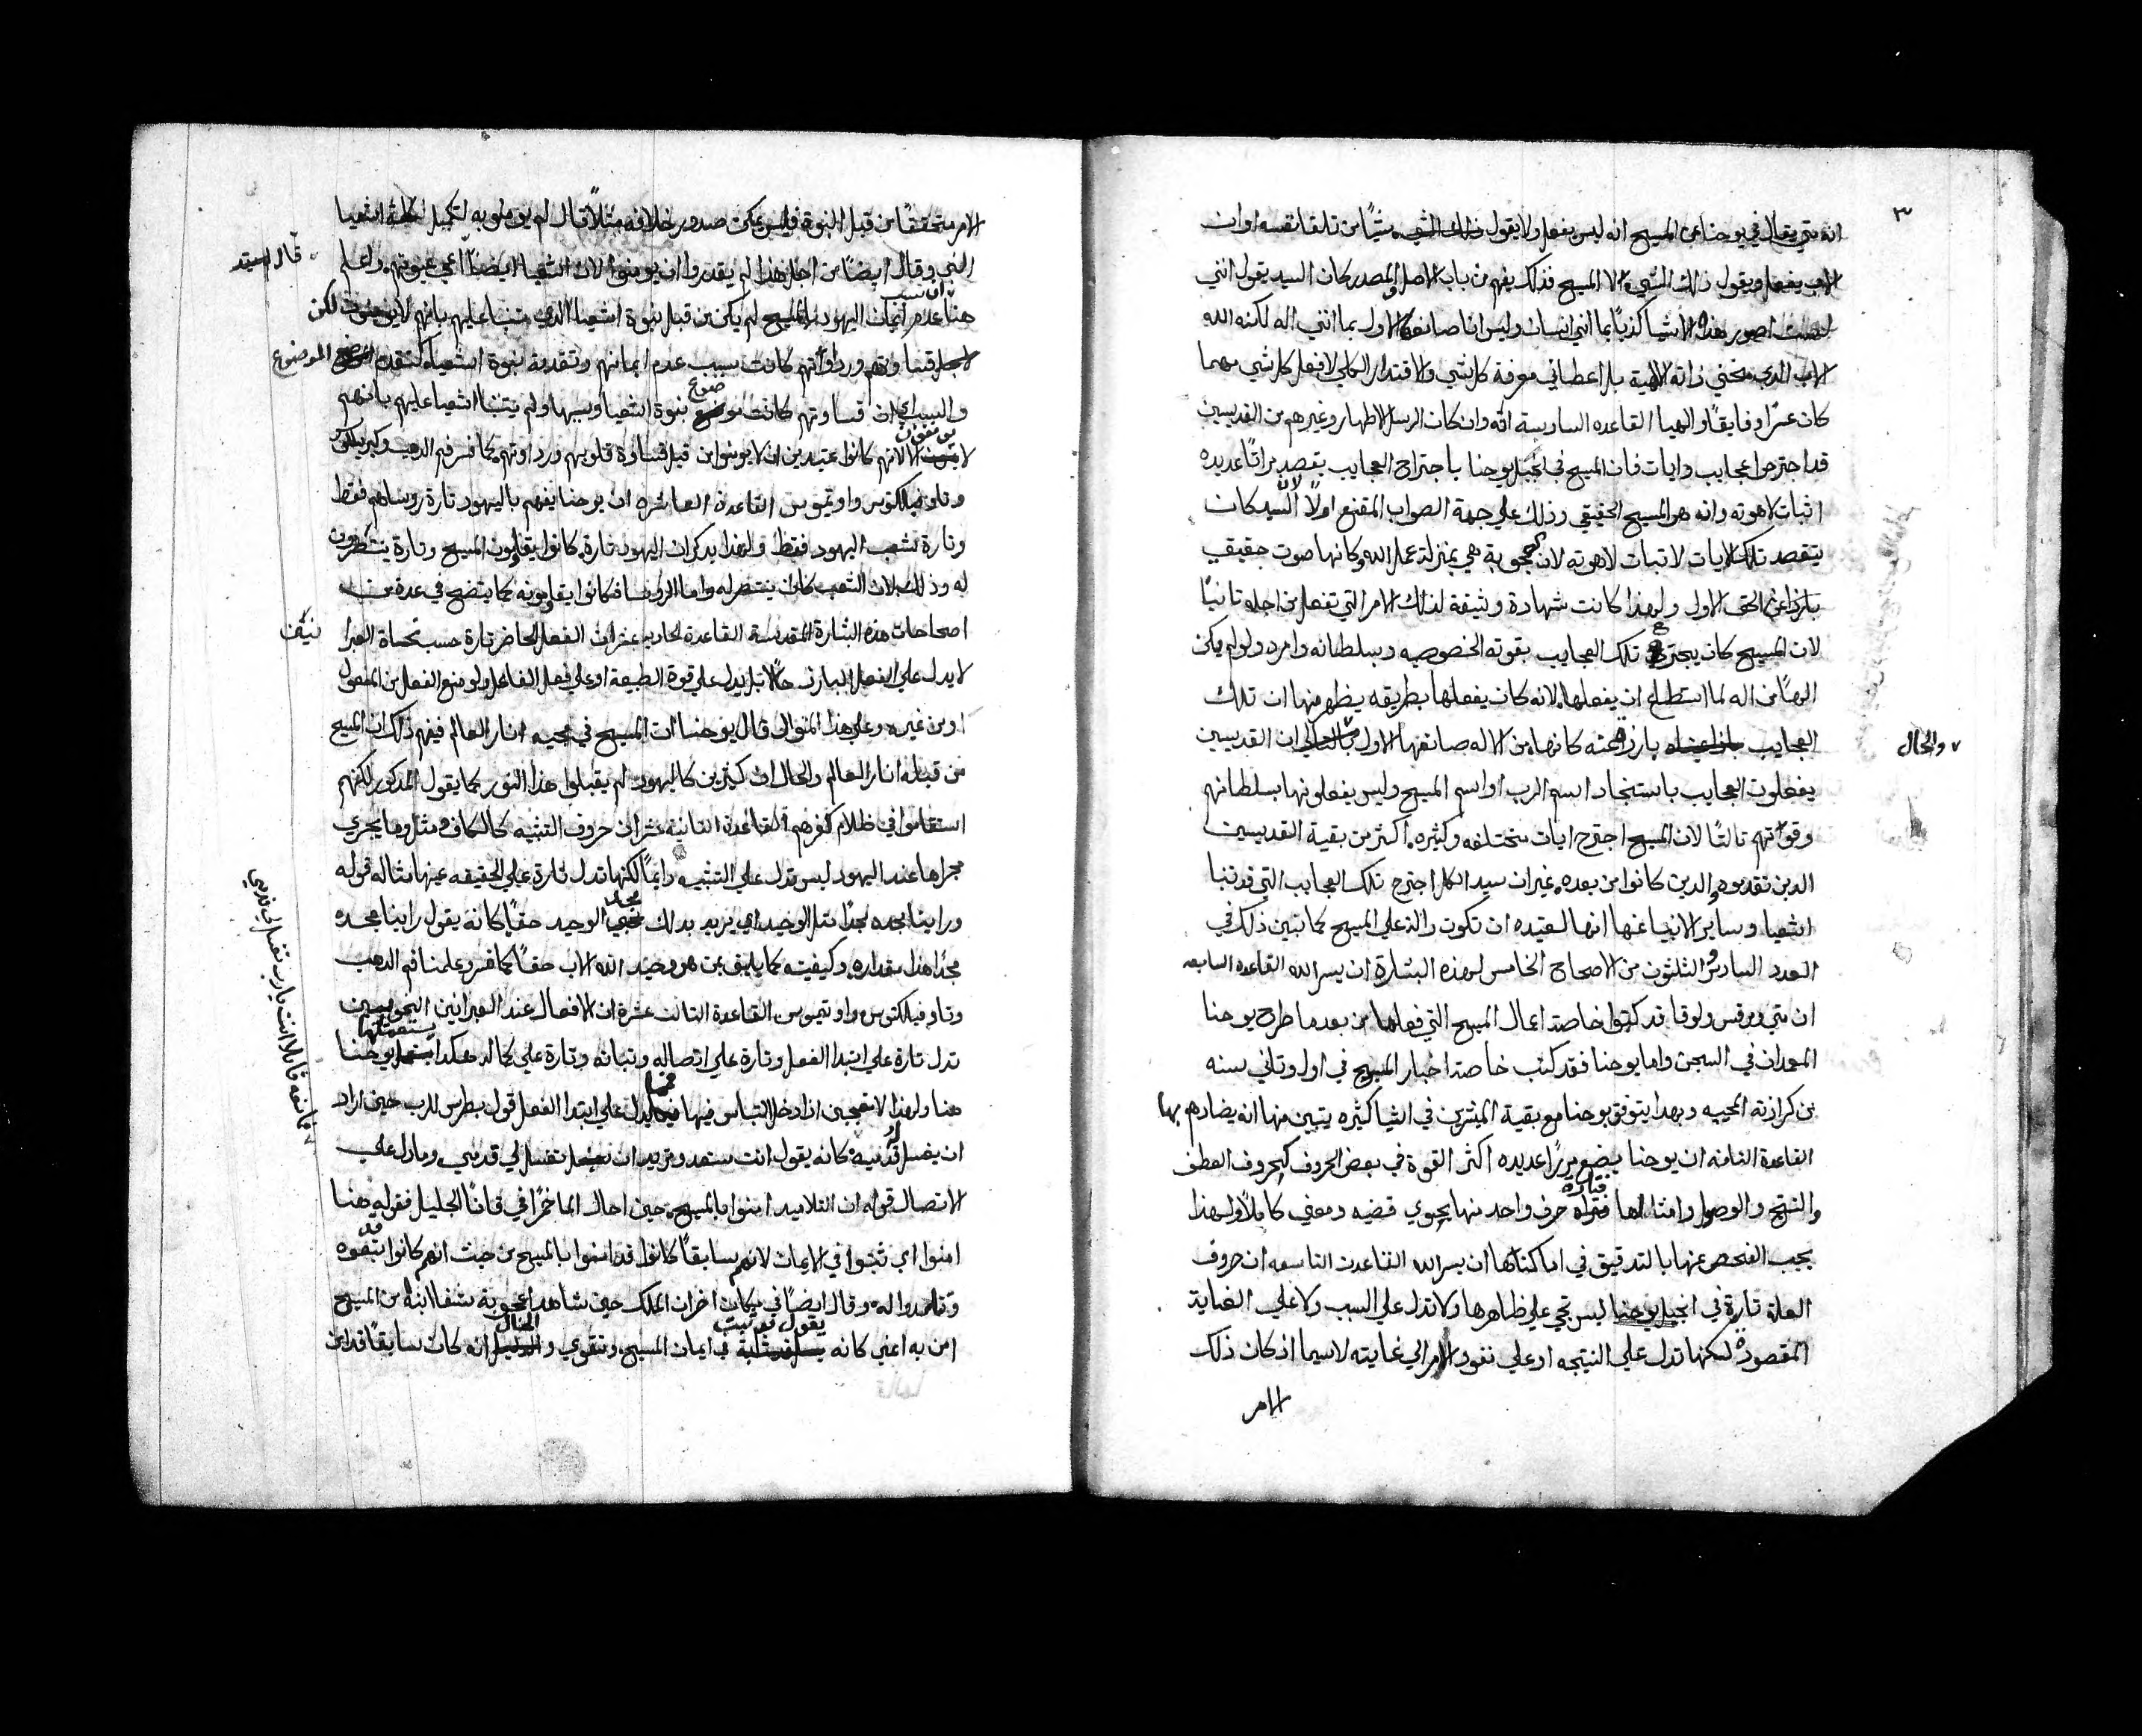 ٣
انه متي يقال في يوحنا عن المسيح انه ليس يفعل ولا يقول ذلك الشي شيًا من تلقا نفسه او ان
الاب يفعل ويقول ذلك الشي لا المسيح فذلك يفهم من باب الاصل والمصدر كان السيد يقول انني
لست اصور هذه الاشيا كذبًا بما انني انسان وليس انا صانعها الاول بما انني اله لكنه الله
الاب الذي منحني ذاته الالهية بل اعطاني معرفة كل شي والاقتدار الكلي لافعل كل شي مهما
كان عسرًا وفايقًا والهيا القاعده السادسة انه وان كان الرسل الاطهار وغيرهم من القديسين
قد اجترحوا عجايب وايات فان المسيح في انجيل يوحنا باجتراح العجايب يقصد مرارًا عديده
اثبات لاهوته وانه هو المسيح الحقيقي وذلك علي جهة الصواب المقنع اولًا لان السيد كان
يتقصد تلك الايات لاثبات لاهوته لان العجوبة هي بمنزلة عمل الله وكانها صوت حقيقي
بارز عن الحق الاول ولهذا كانت شهادة وثيقة لذلك الامر التي تفعل من اجله ثانيًا
لان المسيح كان يجترح تلك العجايب بقوته الخصوصيه وبسلطانه وامره ولو لم يكن
الهًا من اله لما استطاع ان يفعلها لانه كان يفعلها بطريقه يظهر منها ان تلك
العجايب بارزة منه كانها من الاله صانعها الاول والحال ان القديسين
والحال
يفعلون العجايب باستنجاد اسم الرب او اسم المسيح وليس يفعلونها بسلطانهم
وقوتهم ثالثًا لان المسيح اجترح ايات مختلفه وكثيره اكثر من بقية القديسين
الدين تقدموه والدين كانوا من بعده غير ان سيد الكل اجترح تلك العجايب التي قد تنبا
اشعيا وساير الانبيا عنها انها لعتيده ان تكون دالة علي المسيح كما تبين ذلك في
العدد السادس والثلثون من الاصحاح الخامس لهذه البشارة ان يسر الله القاعده السابعه
ان متي ومرقس ولوقا قد كتبوا خاصة اعمال المسيح التي فعلها من بعد ما طرح يوحنا
المعمدان في السجن واما يوحنا فقد كتب خاصة اخبار المسيح في اول وثاني سنه
من كرازته المحييه وبهدا يتوفق يوحنا مع بقية المبشرين في اشيا كثيره يتبين منها انه يضادهم بها
القاعدة الثامنه ان يوحنا يضع مرارًا عديده اكثر القوة في بعض الحروف كحروف العطف
والنتج والوصل وامثالها فتاره حرف واحد منها يحوي قضيه ومعني كاملًا ولهذا
يجب الفحص عنها بالتدقيق في اماكنها ان يسر الله القاعدت التاسعه ان حروف
العلة تارة في انجيل يوحنا ليس تجي علي ظاهرها ولا تدل علي السبب ولا علي الغاية
المقصودة لكنها تدل علي النتيجه او علي نفود الامر الي غايته لاسيما اذ كان ذلك
الامر
الامر متحققًا من قبل النبوة فليس يمكن صدور خلافه مثلًا قال لم يومنوا به لتكمل كلمة اشعيا
النبي وقال ايضًا من اجل هذا لم يقدروا ان يومنوا لان اشعيا ايضًا قال اعمي عيونهم واعلم
قال السيد
هنا ان سبب عدم ايمان اليهود بالمسيح لم يكن من قبل نبوة اشعيا الذي تنبا عليهم بانهم لا يومنون لكن
قساوتهم ورداوتهم كانت سبب عدم ايمانهم وتقدمة نبوة اشعيا كتقدم الموضوع
والسبب اي ان قساوتهم كانت موضوع نبوة اشعيا وسببها ولم يتنبا اشعيا عليهم بانهم
لا يومنون الا لانهم كانوا عتيدين ان لا يومنوا من قبل قساوة قلوبهم ورداوتهم كما فسر فم الدهب وكيريللوس
وثاوفيلكتوس واوتيموس القاعدة العاشره ان يوحنا يفهم باليهود تارة روساهم فقط
وتارة شعب اليهود فقط ولهذا يدكر ان اليهود تارة كانوا يقاومون المسيح وتارة ينتظرون
له وذلك لان الشعب كان ينتصر له واما الروسا فكانوا يقاومونه كما يتضح في عدة من
اصحاحات هذه البشارة المقدسة القاعدة الحاديه عشر ان الفعل الحاضر تارة حسب نحاة العبرا
نيين
لا يدل علي الفعل البارز حالًا بل يدل علي قوة الطبيعة او علي فعل الفاعل ولو منع الفعل من المفعول
او من غيره وعلي هذا المنوال قال يوحنا ان المسيح في مجيه انار العالم فيفهم ذلك ان المسيح
من قبله انار العالم والحال ان كثيرين كاليهود لم يقبلوا هذا النور كما يقول المدكور لكنهم
استقاموا في ظلام كفرهم القاعدة الثانية عشر ان حروف التشبيه كالكاف ومثل وما يجري
مجراها عند اليهود ليس تدل علي التشبيه دايمًا لكنها تدل تارة علي الحقيقه عينها مثاله قوله
وراينا مجده مجدًا مثل الوحيد اي يريد بدلك مجد الوحيد حقًا كانه يقول راينا مجده
مجدًا هذا مقداره وكيفيته كما يليق بمن هو وحيد الله الاب حقًا كما فسر وعلمنا فم الدهب
وثاوفيلكتوس واوتيموس القاعدة الثالث عشرة ان الافعال عند العبرانين النحويين
تدل تارة علي ابتدا الفعل وتارة علي اتصاله وثباته وتارة علي كماله هكدا يستعملها يوحنا
هنا ولهذا لا تعجبن اذا دخل التباس فيها فمما يدل علي ابتدا الفعل قول بطرس للرب حين اراد
ان يغسل قدميه كانه يقول انت مستعد وتريد ان تغسل لي قدمي ومما دل علي
مانعه قايلًا انت يا رب تغسل لي قدمي
الاتصال قوله ان التلاميد امنوا بالمسيح حين احال الما خمرًا في قانا الجليل فقوله هنا
امنوا اي ثبتوا في الايمان لانهم سابقًا كانوا قد امنوا بالمسيح من حيث انهم كانوا قد تبعوه
وتلمدوا له وقال ايضًا في مكان اخر ان الملك حين شاهد اعجوبة شفا ابنه من المسيح
امن به اعني كانه يقول قد ثبت في ايمان المسيح وتقوي والحال انه كان سابقًا قد امن